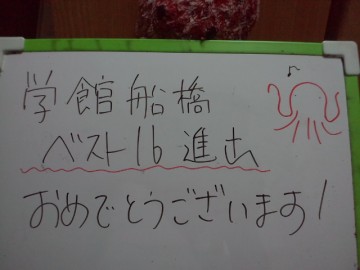 学館船橋
ベスト16進出
おめでとうございます!